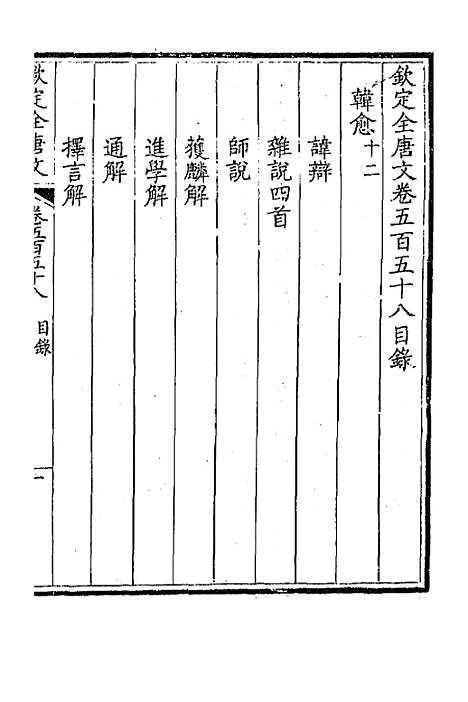 欽定全唐文卷五百五十八目錄
韓愈十二
諱辯
雜說四首
師說
獲麟解
進學解
通解
擇言解
欽定全唐文
卷五百五十八
目錄
一